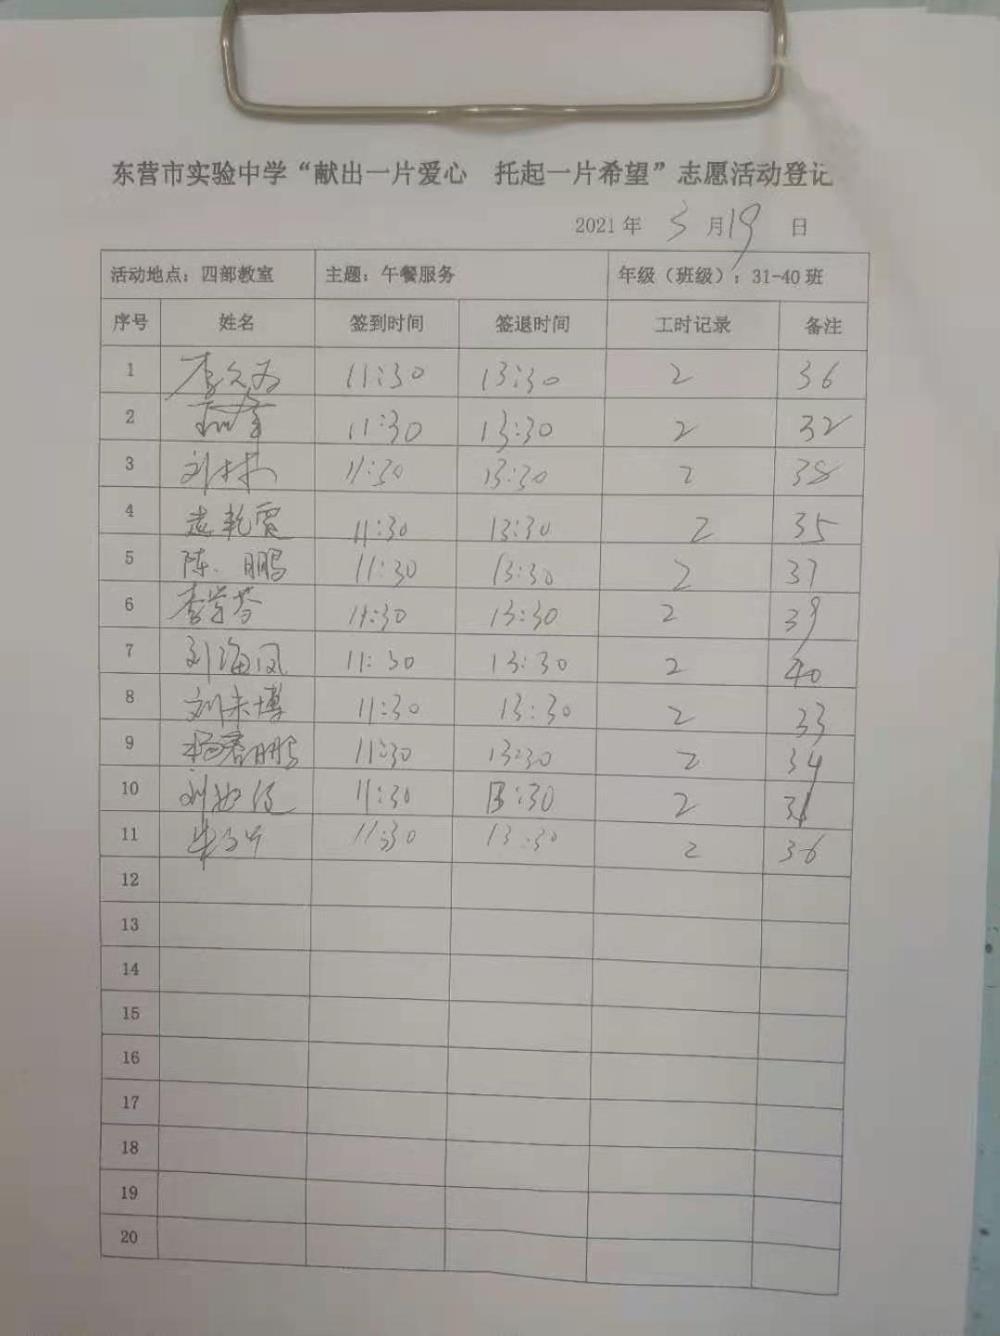 东营市实验中学“献出一片爱心 托起一片希望”志愿活动登记
2021 年 3 月 19 日
活动地点：四部教室 主题：午餐服务 年级（班级）：31-40 班
序号 姓名 签到时间 签退时间 工时记录 备注
1 11:30 13:30 2 36
2 11:30 13:30 2 32
3 刘林 11:30 13:30 2 38
4 11:30 13:30 2 35
5 陈鹏 11:30 13:30 2 37
6 李学芬 11:30 13:30 2 39
7 刘海凤 11:30 13:30 2 40
8 11:30 13:30 2 33
9 11:30 13:30 2 34
10 11:30 13:30 2 31
11 11:30 13:30 2 36
12
13
14
15
16
17
18
19
20